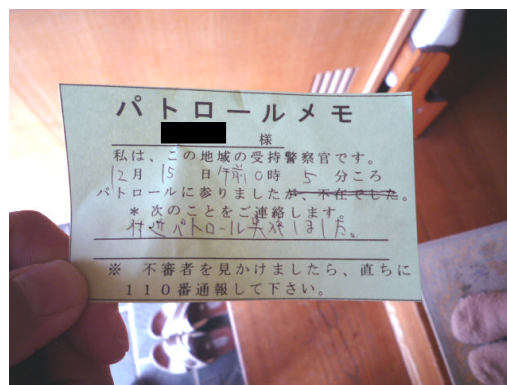 パトロールメモ
様
私は、この地域の受持警察官です。
12月15日午前0時5分ころ
パトロールに参りましたが、不在でした。
* 次のことをご連絡します。
付近パトロール実施しました。
※ 不審者を見かけましたら、直ちに
110番通報して下さい。